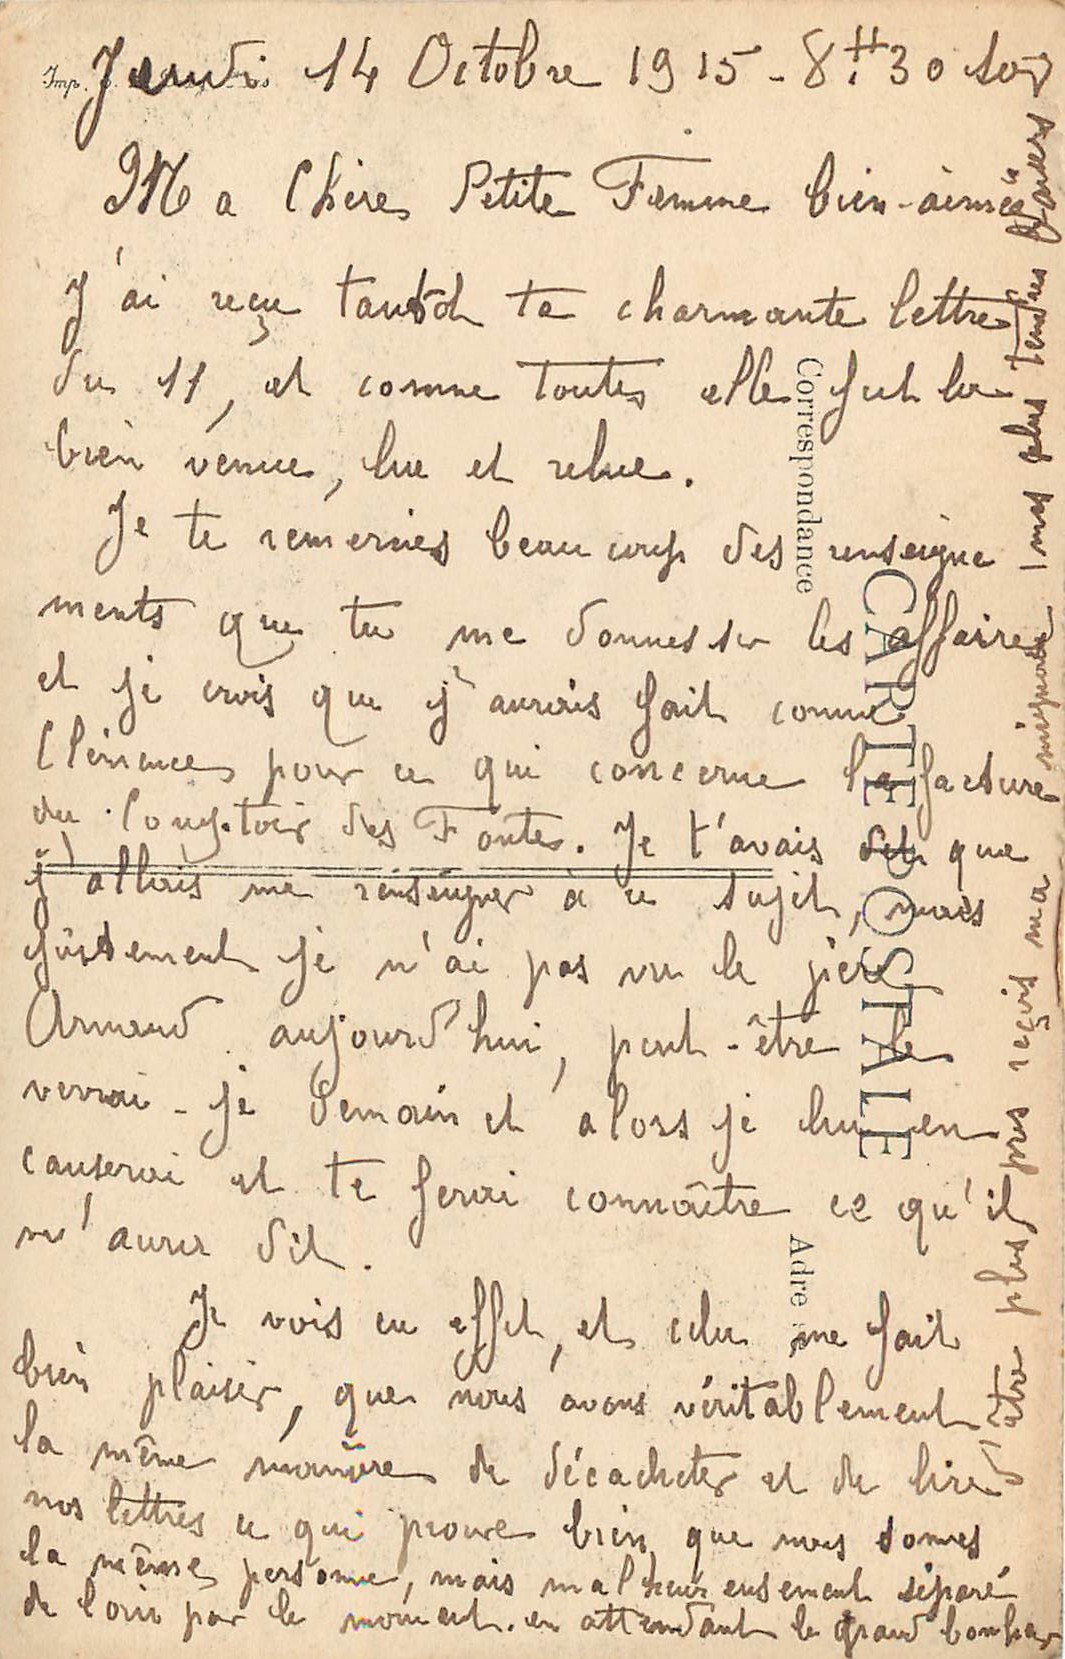 Jeudi 14 Octobre 1915 - 8H30 soir
Ma Chère Petite Femme bien-aimée
J'ai reçu tantôt ta charmante lettre
du 11, et comme toutes elle fut la
bien venue, lue et relue.
Je te remercies beaucoup des renseigne
ments que tu me donnes sur les affaires
et je crois que j'aurais fait comme
Clémence pour ce qui concerne la facture
du Comptoir des Fontes. Je t'avais dit que
j'allais me renseigner à ce sujet, mais
justement je n'ai pas vu le père
Armand aujourd'hui, peut-être le
verrai-je demain et alors je lui en
causerai et te ferai connaître ce qu'il
m'aura dit.
Je vois en effet, et cela me fait
bien plaisir, que nous avons véritablement
la même manière de décacheter et de lire
nos lettres ce qui prouve bien que nous sommes
la même personne, mais malheureusement séparé
de loin par le moment. en attendant le grand bonheur
d'être plus près reçois ma mignonne mes plus tendres baisers
Correspondance
CARTE POSTALE
Adre
Imp.